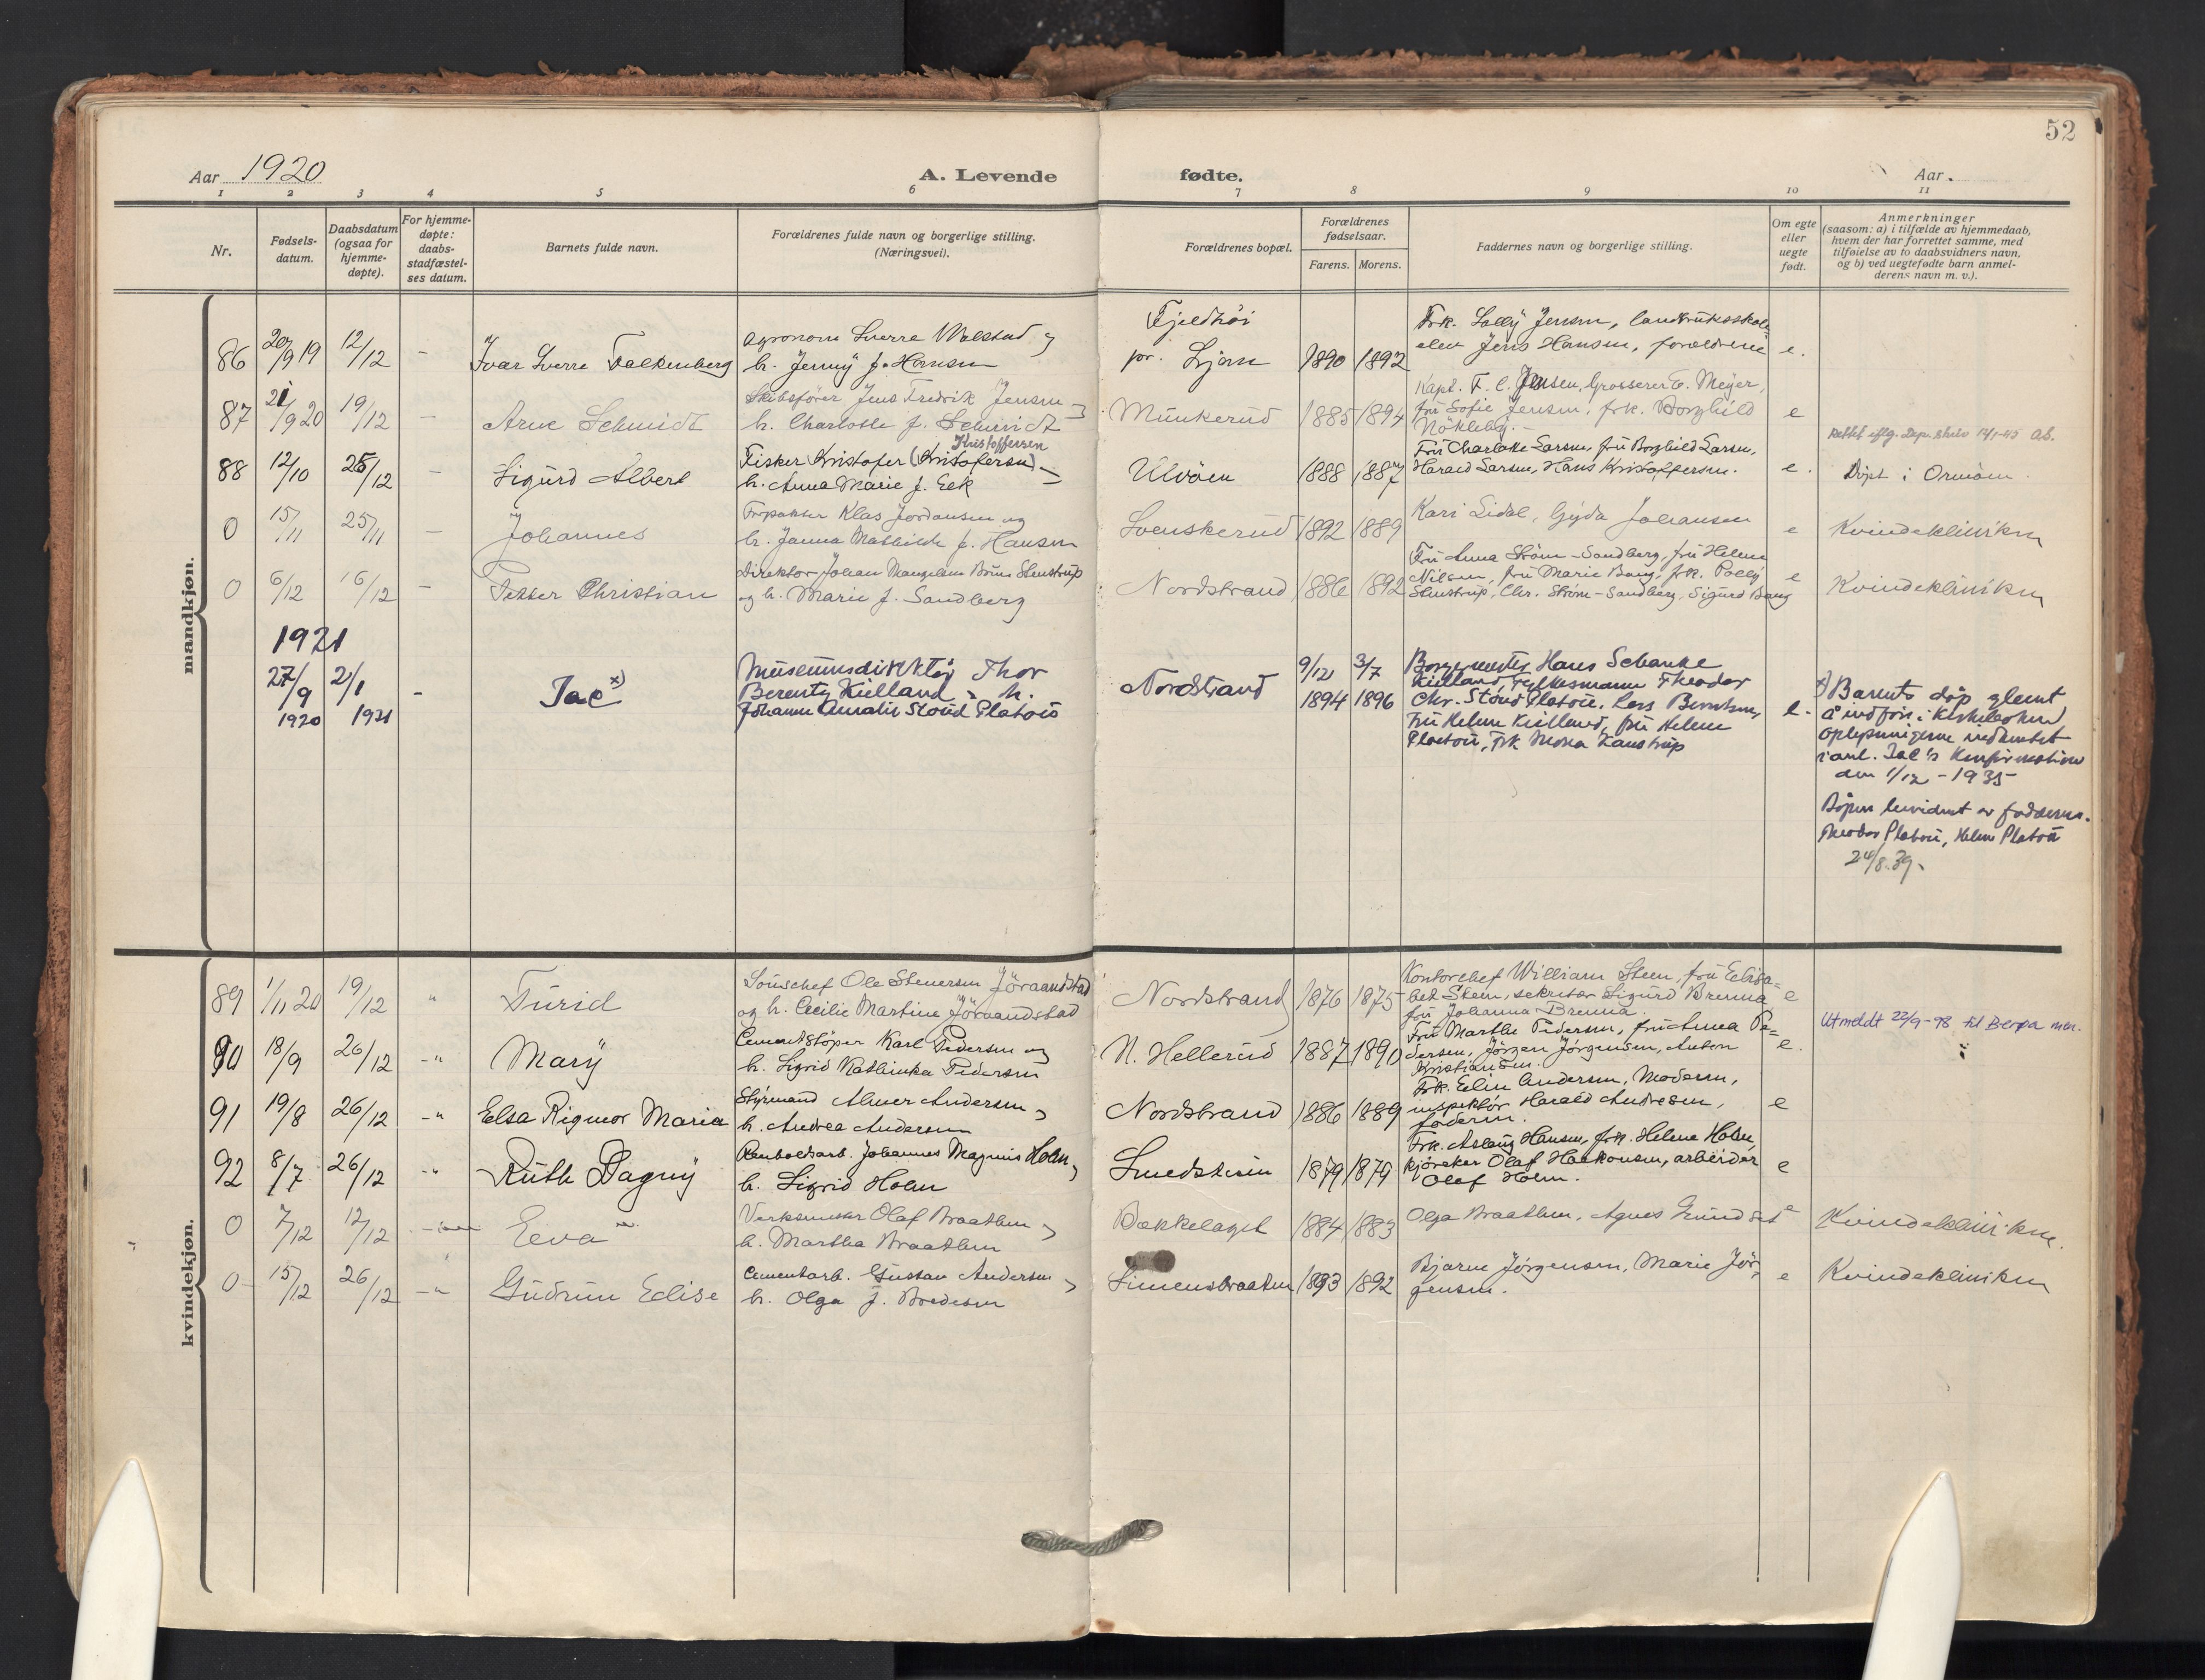 52
Aar 1920
A. Levende fødte.
Aar
1 2 3 4 5 6 7 8 9 10 11
Nr.
Fødsels-
datum.
Daabsdatum
(ogsaa for
hjemme-
døpte).
For hjemme-
døpte:
daabs-
stadfæstel-
ses datum.
Barnets fulde navn.
Forældrenes fulde navn og borgerlige stilling.
(Næringsvei).
Forældrenes bopæl.
Forældrenes
fødselsaar.
Farens. Morens.
Faddernes navn og borgerlige stilling.
Om egte
eller
uegte
født.
Anmerkninger
(saasom: a) i tilfælde av hjemmedaab,
hvem der har forrettet samme, med
tilføielse av to daabsvidners navn,
og b) ved uegtefødte barn anmel-
derens navn m. v.).
mandkjøn.
86 20/9 19 12/12 - Ivar Sverre Falkenberg
agronom Sverre Wolstad og
h. Jenny f. Hansen
Fjeldhöi
pr. Ljan 1890 1892
Frk. Lolly Jensen, landbruksskole-
elev Jens Hansen, forældrene e.
87 21/9 20 19/12 - Arne Schmidt
Skibsfører Jens Fredrik Jensen
h. Charlotte f. Schmidt
Munkerud 1885 1894
Kapt. F. C. Jensen, Grosserer E. Meyer,
fru Sofie Jensen, frk. Borghild
Nökleby. - e
88 12/10 25/12 - Sigurd Albert
Kristoffersen
Fisker Kristofer (Kristofersen)
h. Anna Marie f. Eek
Ulvöen 1888 1887
Fru Charlotte Larsen, fru Borghild Larsen,
Harald Larsen, Hans Kristoffersen. e.
Rettet iflg. Dep. skriv 14/1-45
Döpt i Ormöen.
0 15/11 25/11 - Johannes
Klas Jordansen og
h. Janna Mathilde f. Hansen
Svenskerud 1892 1889
Kari Lidal, Gyda Johansen e
Kvindekliniken
0 6/12 16/12 - Petter Christian
Direktør Johan Mangelus Brun Stenstrup
og h. Marie f. Sandberg
Nordstrand 1886 1892
Fru Anna Strøm-Sandberg, fru Helene
Nilsen, fru Marie Bang, frk. Polly
Stenstrup, Chr. Strøm-Sandberg, Sigurd Bang e
Kvindekliniken
1921
27/9 1920 2/1 1921 - Jac x)
Museumsdirektør Thor
Berentz Kielland & h.
Johanne Amalie Stoud Platou
Nordstrand 9/12 1894 3/7 1896
Borgermester Hans Schanke
Kielland, Fylkesmann Theodor
Chr. Stoud Platou, Lars Berentsen,
Fru Helene Kielland, fru Helene
Platou, Frk Mona Kaustrup e.
x) Barnets døp glemt
å indføre i kirkeboken,
oplysningerne meddelt
i anl. Jac's Konfirmation
den 1/12 - 1935
Døpen bevidnet av fadderne.
Theodor Platou, Helene Platou
24/8.39.
kvindekjøn.
89 1/11 20 19/12 " Turid
Ole Stenersen Jöraandstad
og h. Cecilie Martine Jöraandstad
Nordstrand 1876 1875
Kontorchef William Steen, fru Elisa-
bet Steen, sekretær Sigurd Brenna
fru Johanna Brenna. e
Utmeldt 22/9-98 til
90 18/9 26/12 -" Mary
Cementstöper Karl Pedersen og
h. Sigrid Kathinka Pedersen
N. Hellerud 1887 1890
Fru Marthe Pedersen, fru Anna Pe-
dersen, Jörgen Jörgensen, Anton
Kristiansen. e.
91 19/8 26/12 -" Elsa Rigmor Maria
Styrmand Almer Andersen
h. Andrea Andersen
Nordstrand 1886 1889
Frk. Elin Andersen, Moderen,
inspektör Harald Andresen,
faderen. e
92 8/7 26/12 -" Ruth Dagny
Renholdsarb. Johannes Magnus Holm
h. Sigrid Holm
Smedstuen 1879 1879
Frk. Aslaug Hansen, frk. Helene Holm,
kjörekar Olaf Haakonsen, arbeider
Olaf Holm. e
0 7/12 12/12 Eva
Verksmester Olaf Braathen
h. Martha Braathen
Bækkelaget 1884 1883
Olga Braathen, Agnes Grundset e
Kvindekliniken.
0 15/12 26/12 -" Gudrun Elise
Cementarb. Gustav Andersen
h. Olga f. Bredesen
Simensbraaten 1893 1892
Bjarne Jörgensen, Marie Jör-
gensen. e
Kvindekliniken